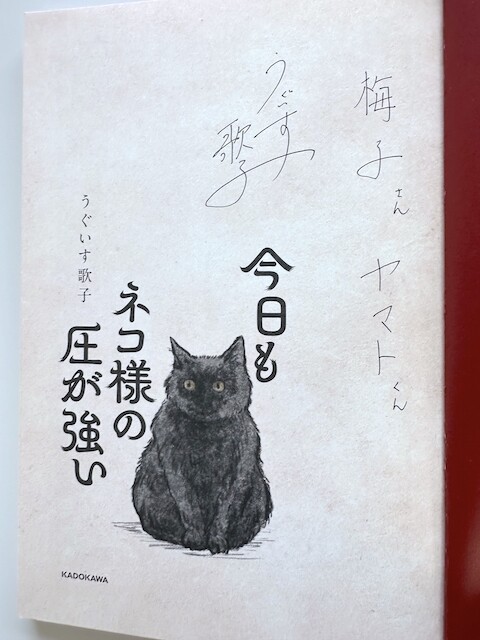 梅子さん ヤマトくん
うぐいす
歌子
今日も
ネコ様の
圧が強い
うぐいす歌子
KADOKAWA